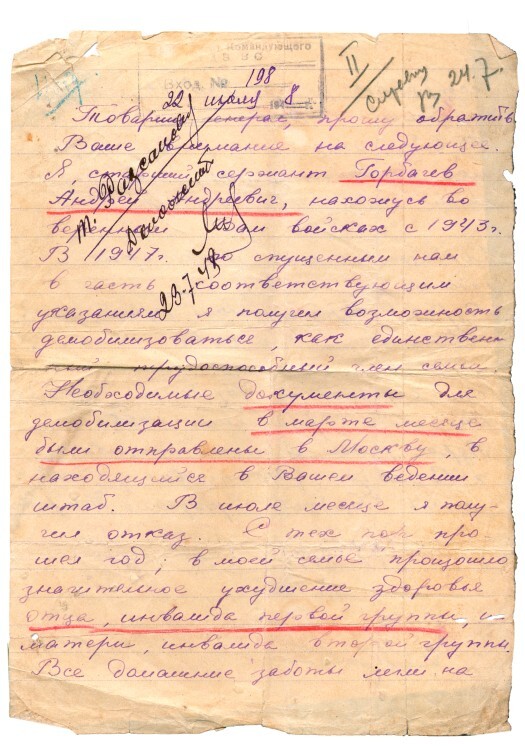 Командующего
ВВС
Вход. №
198
22 июля 8
II
24.7.
Товарищ генерал, прошу обратить
Ваше внимание на следующее.
Я, старший сержант Горбачев
Андрей Андреевич, нахожусь во
веренных Вам войсках с 1943 г.
В 1947 г. по спущенным нам
в часть соответствующим
указаниям я получил возможность
демобилизоваться, как единствен
ный трудоспособный член семьи.
Необходимые документы для
демобилизации в марте месяце
были отправлены в Москву, в
находящийся в Вашем ведении
штаб. В июле месяце я полу-
чил отказ. С тех пор про-
шел год; в моей семье произошло
значительное ухудшение здоровья
отца, инвалида первой группы, и
матери, инвалида второй группы.
Все домашние заботы легли на
т.
Доложить
23.7.48